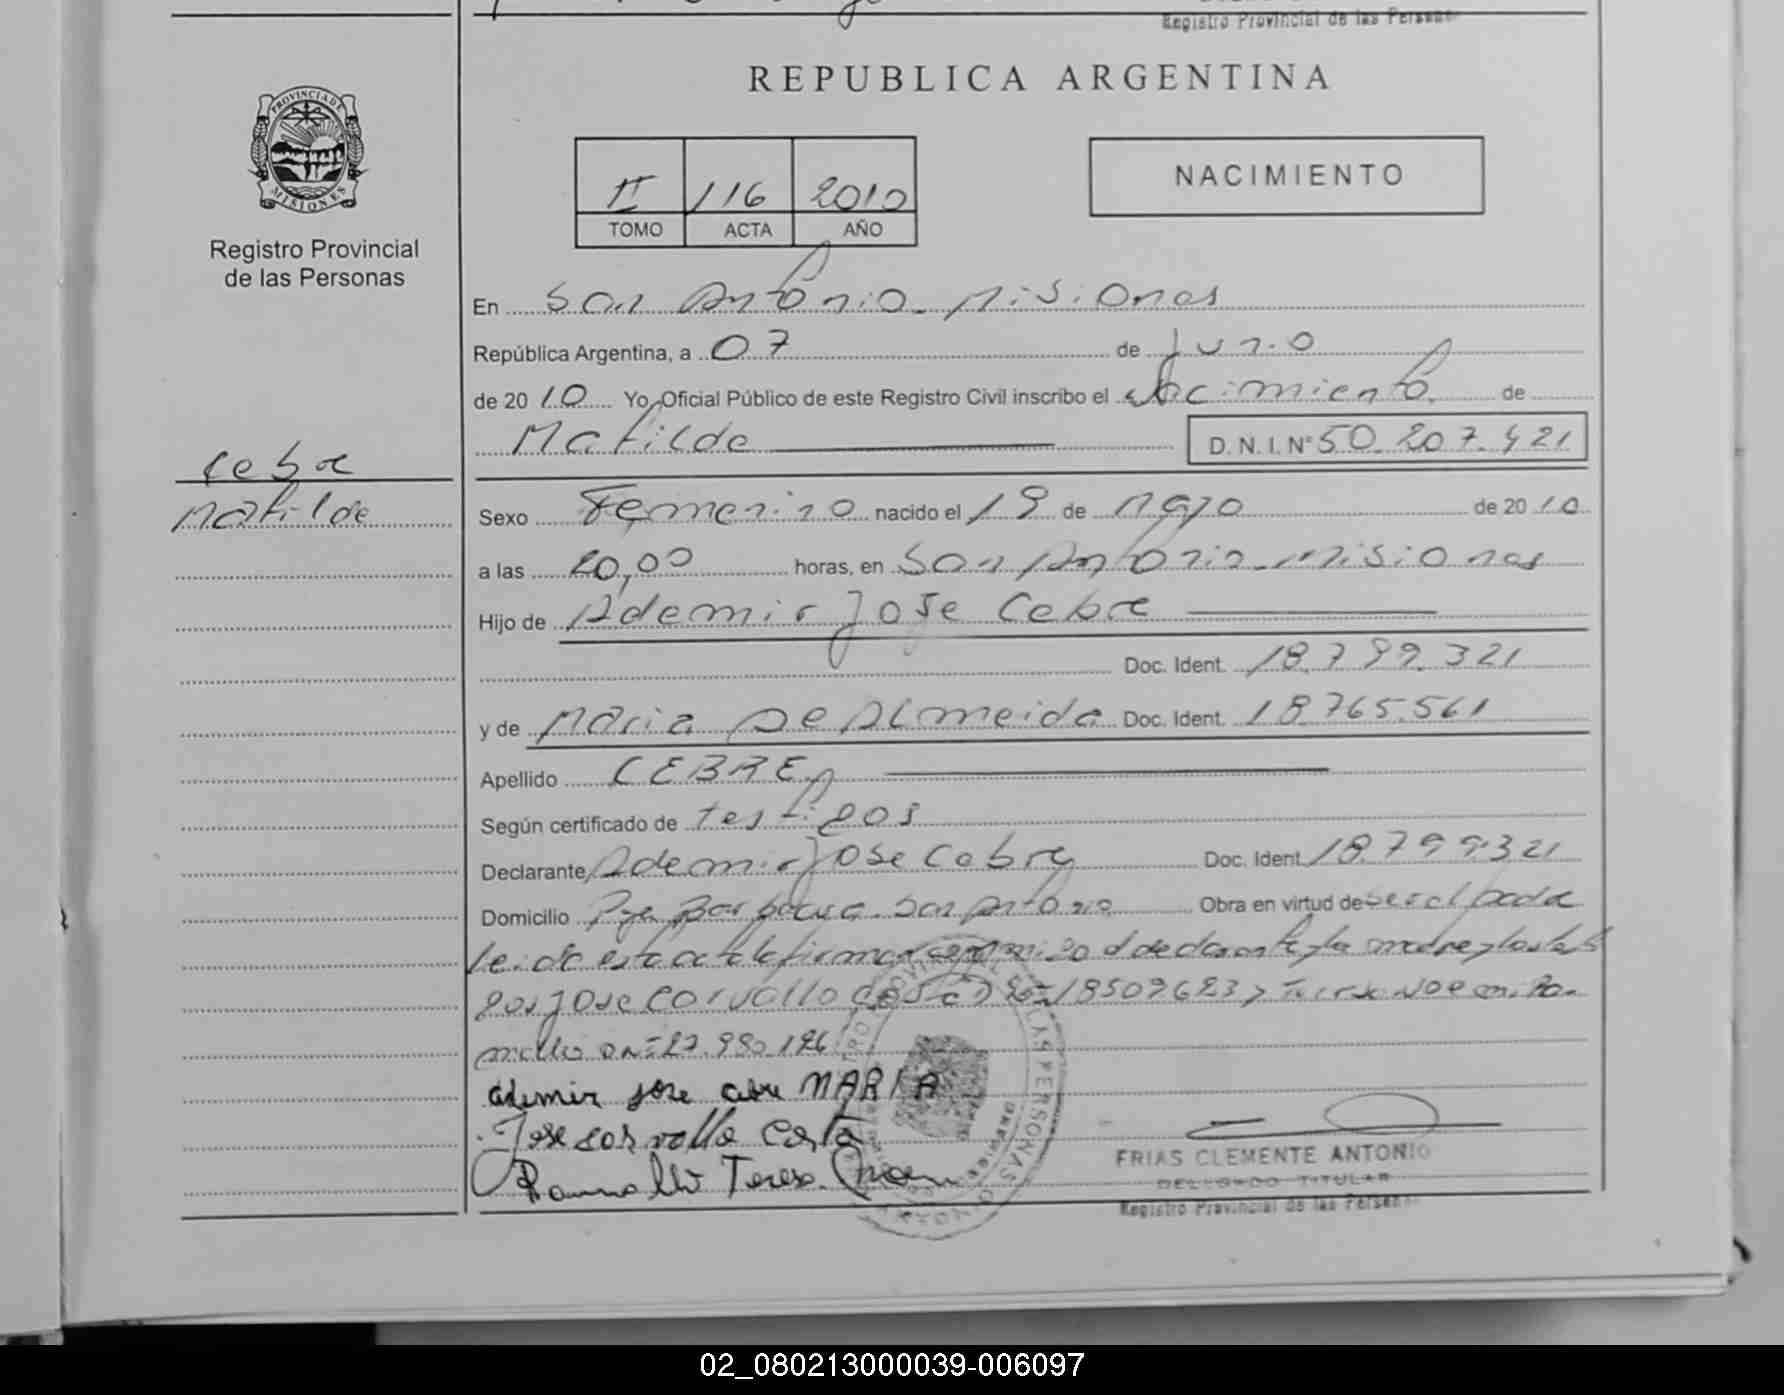 Registro Provincial de las Persona
REPUBLICA ARGENTINA
PROVINCIA DE
MISIONES
Registro Provincial
de las Personas
II 116 2010
TOMO ACTA AÑO
NACIMIENTO
En San Antonio Misiones
República Argentina, a 07 de Junio
de 20 10 Yo, Oficial Público de este Registro Civil inscribo el Nacimiento de
Matilde D.N.I. Nº 50.207.421
Matilde
Sexo Femenino nacido el 19 de Mayo de 20 10
a las 20,00 horas, en San Antonio Misiones
Hijo de Ademir Jose Cebre
Doc. Ident. 18.799.321
y de Maria De Almeida Doc. Ident. 18.765.561
Apellido CEBRE
Según certificado de testigos
Declarante Ademir Jose Cebre Doc. Ident. 18.799.321
Domicilio San Antonio Obra en virtud de ser el padre
leida esta acta la firman conmigo el declarante, la madre y los testi
gos Jose Carvallo 18509623 y
27.980.196
ademir jose cebre MARIA
Jose carvallo Costa
Ramalho Teresa
FRIAS CLEMENTE ANTONIO
DELEGADO TITULAR
Registro Provincial de las Person
02_080213000039-006097